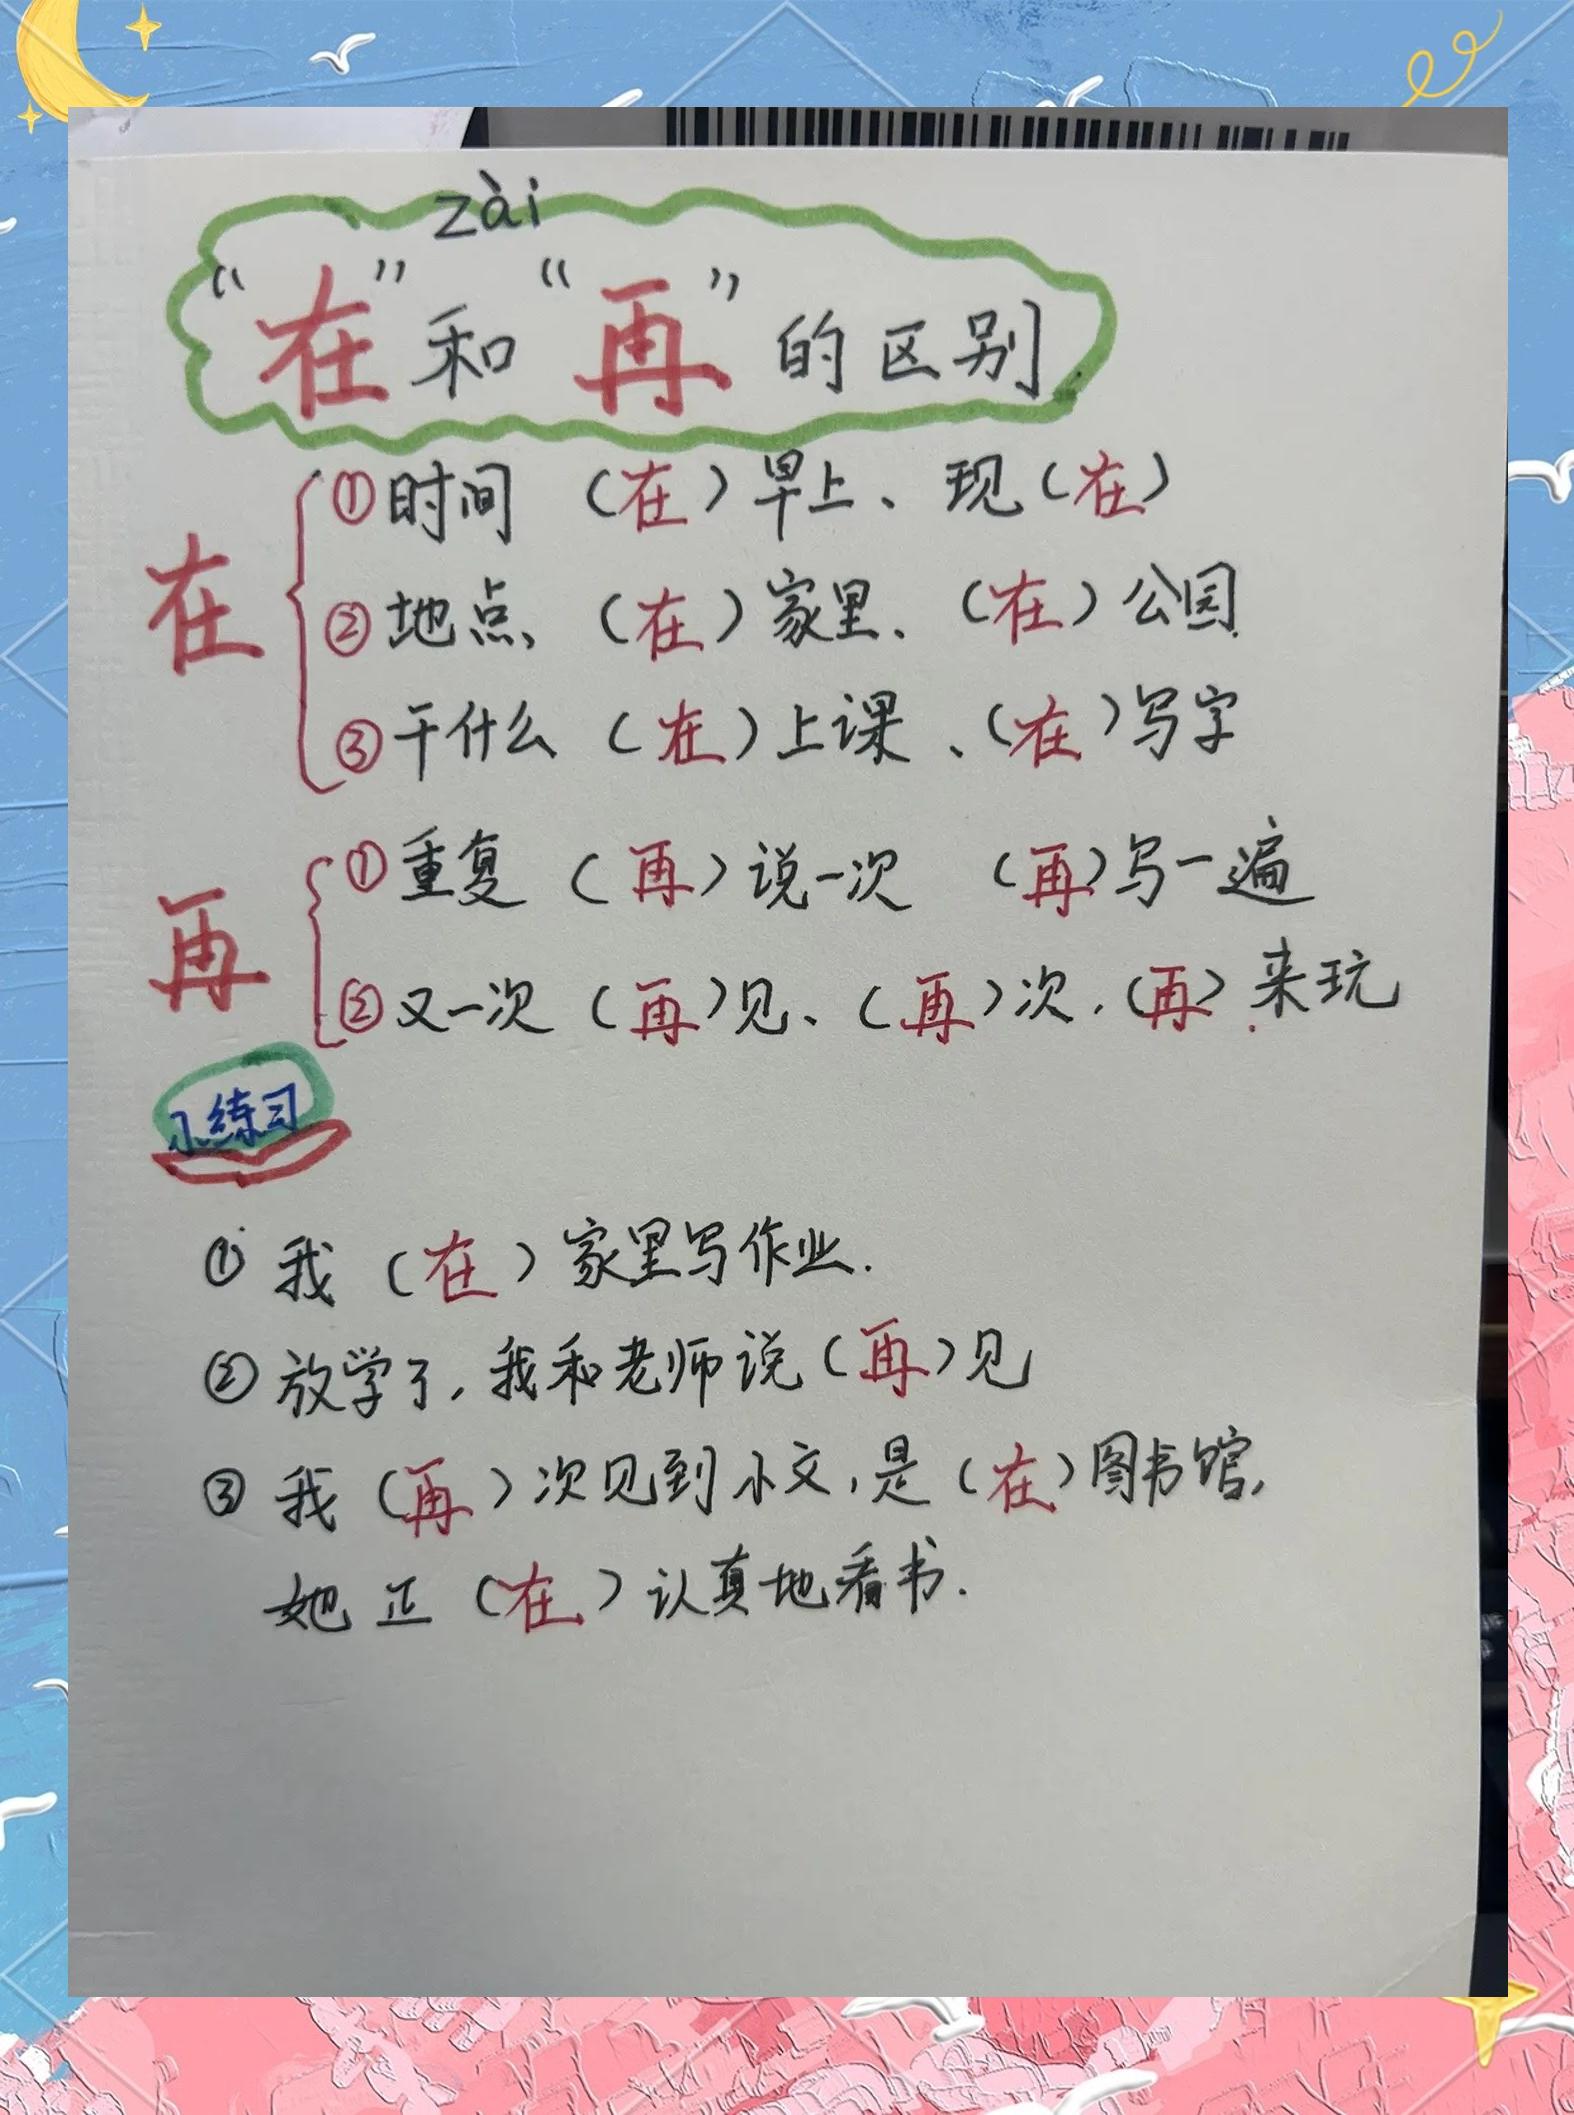 zài
“在”和“再”的区别
在
①时间 （在）早上、现（在）
②地点、（在）家里、（在）公园
③干什么（在）上课、（在）写字
再
①重复（再）说一次 （再）写一遍
②又一次（再）见、（再）次、（再）来玩
小练习
① 我（在）家里写作业.
② 放学了，我和老师说（再）见
③ 我（再）次见到小文，是（在）图书馆，
她正（在）认真地看书.